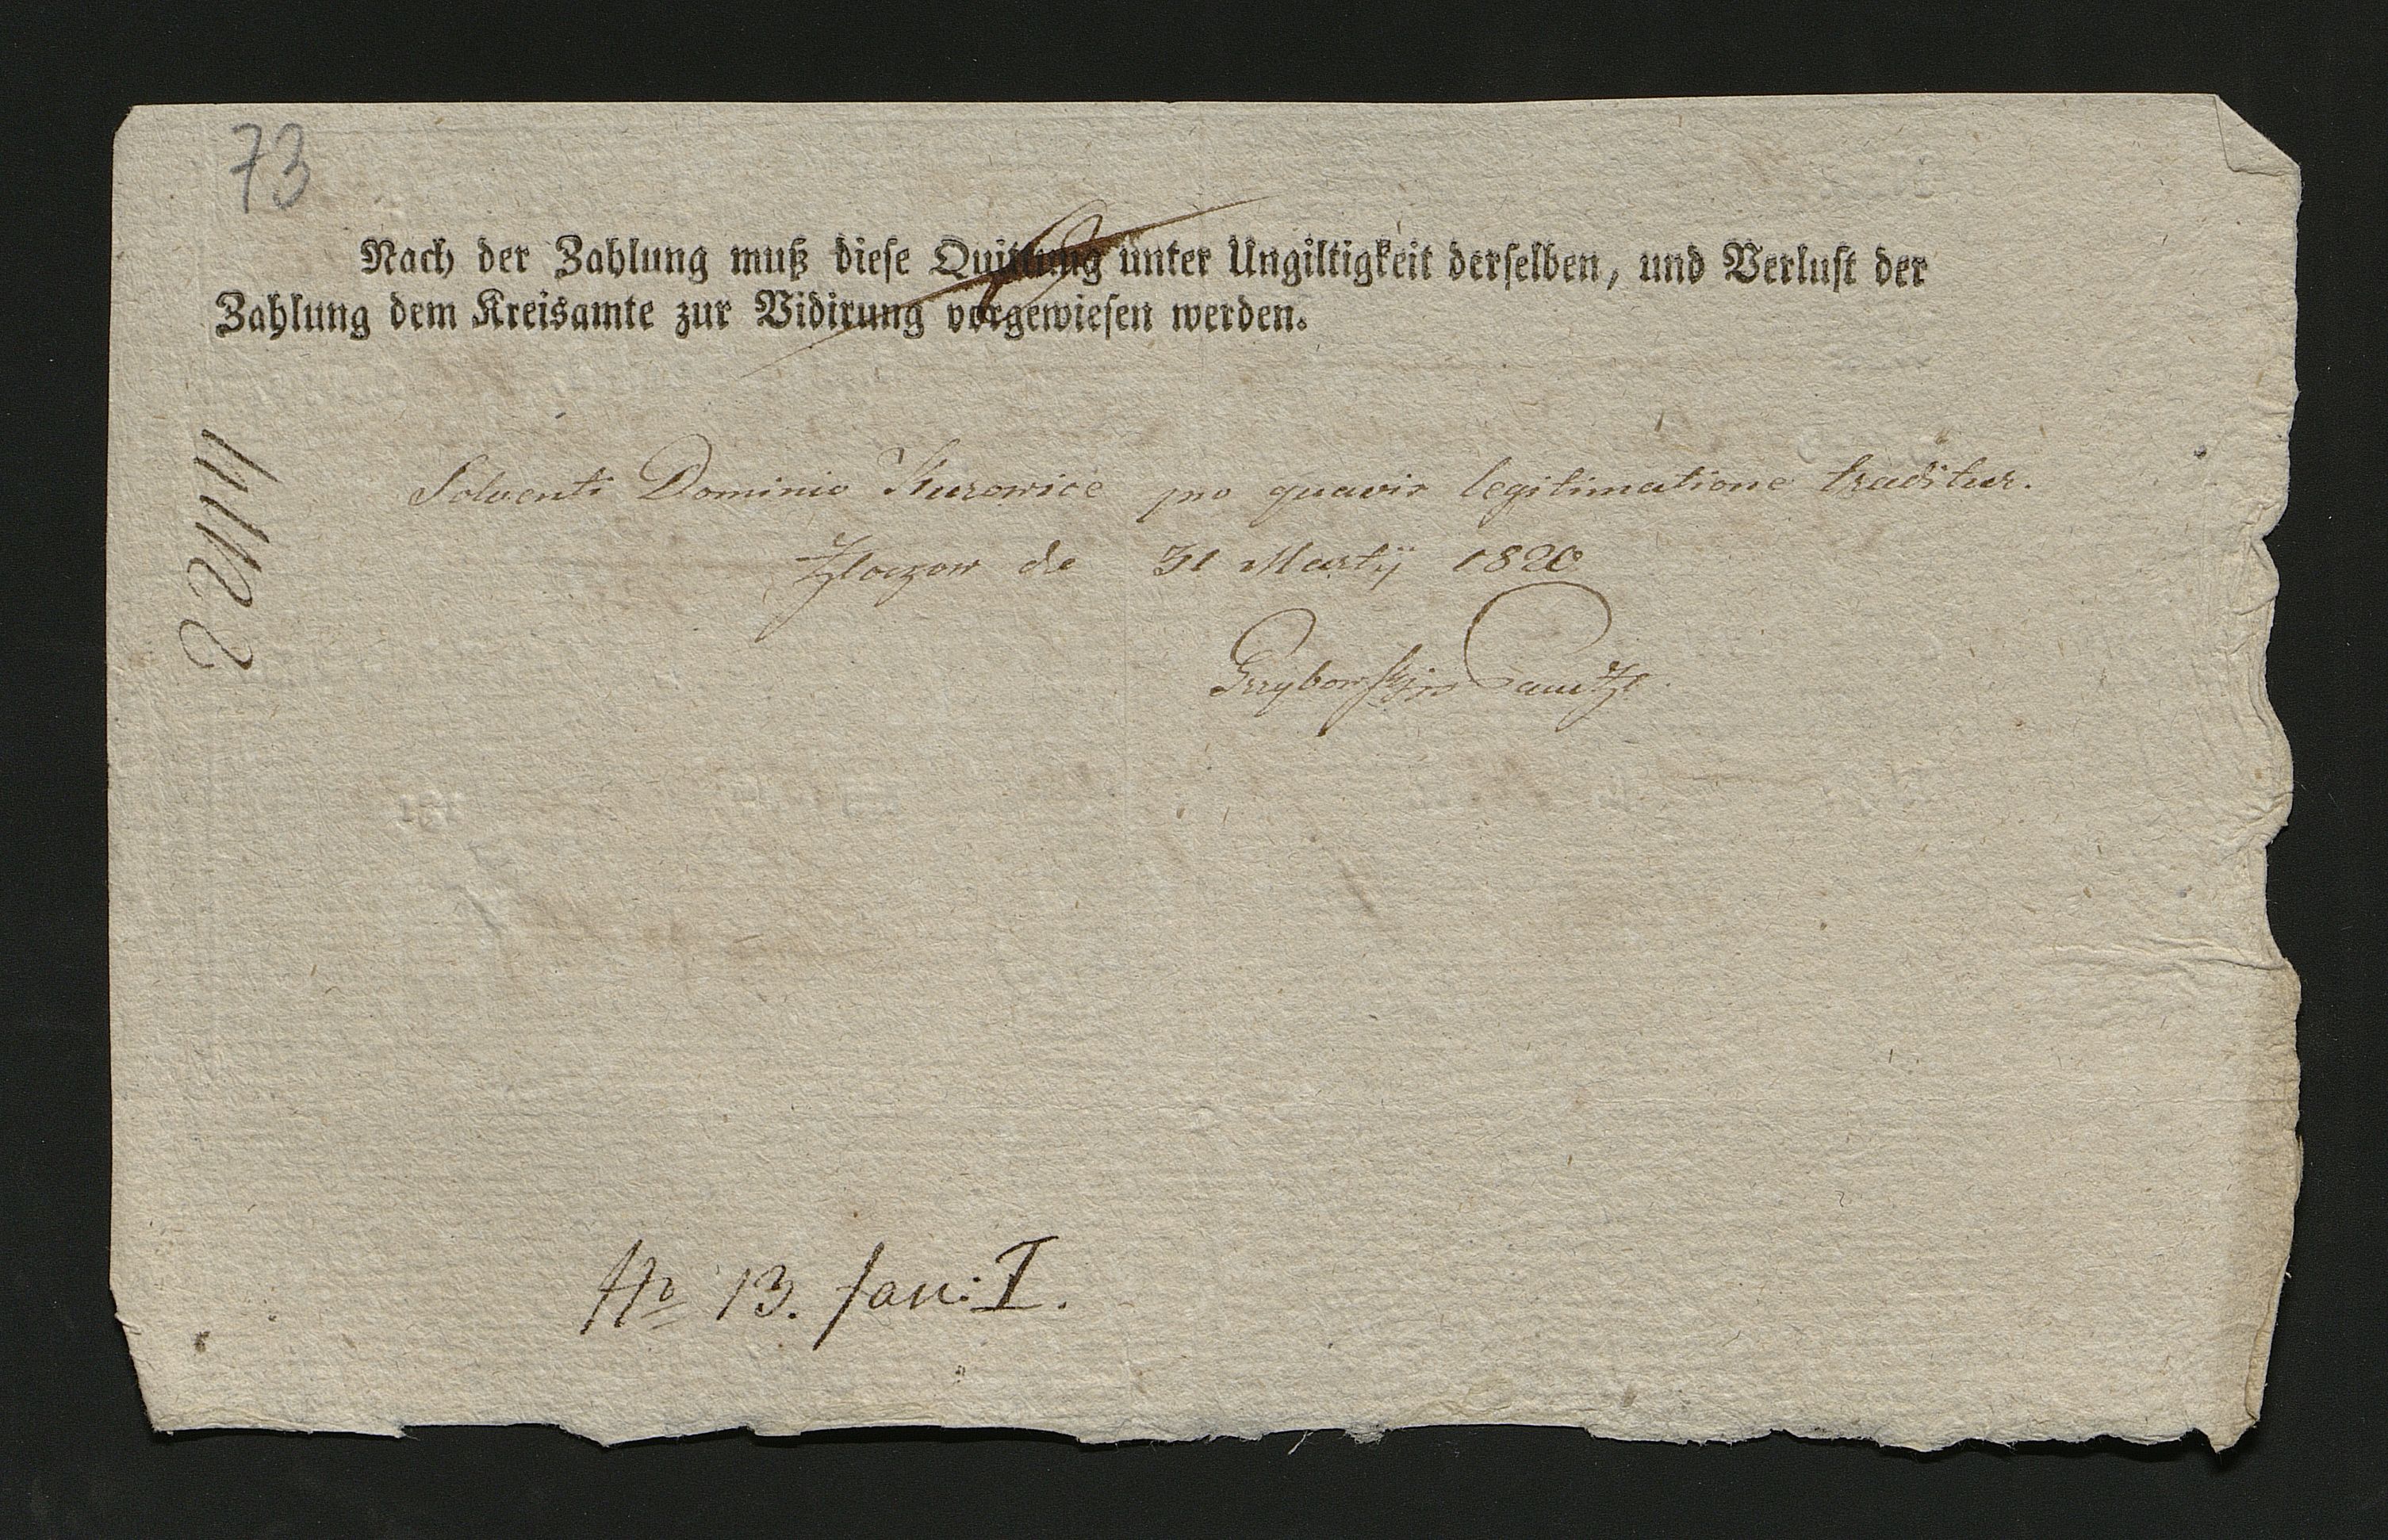 73
Nach der Zahlung muß diese Quittung unter Ungiltigkeit derselben, und Verlust der
Zahlung dem Kreisamte zur Vidirung vorgewiesen werden.
Solventi Dominio Kurowice pro quavis legitimatione traditur.
Złoczow de 31 Martij 1820
Grzybowski
No 13. fan: I.